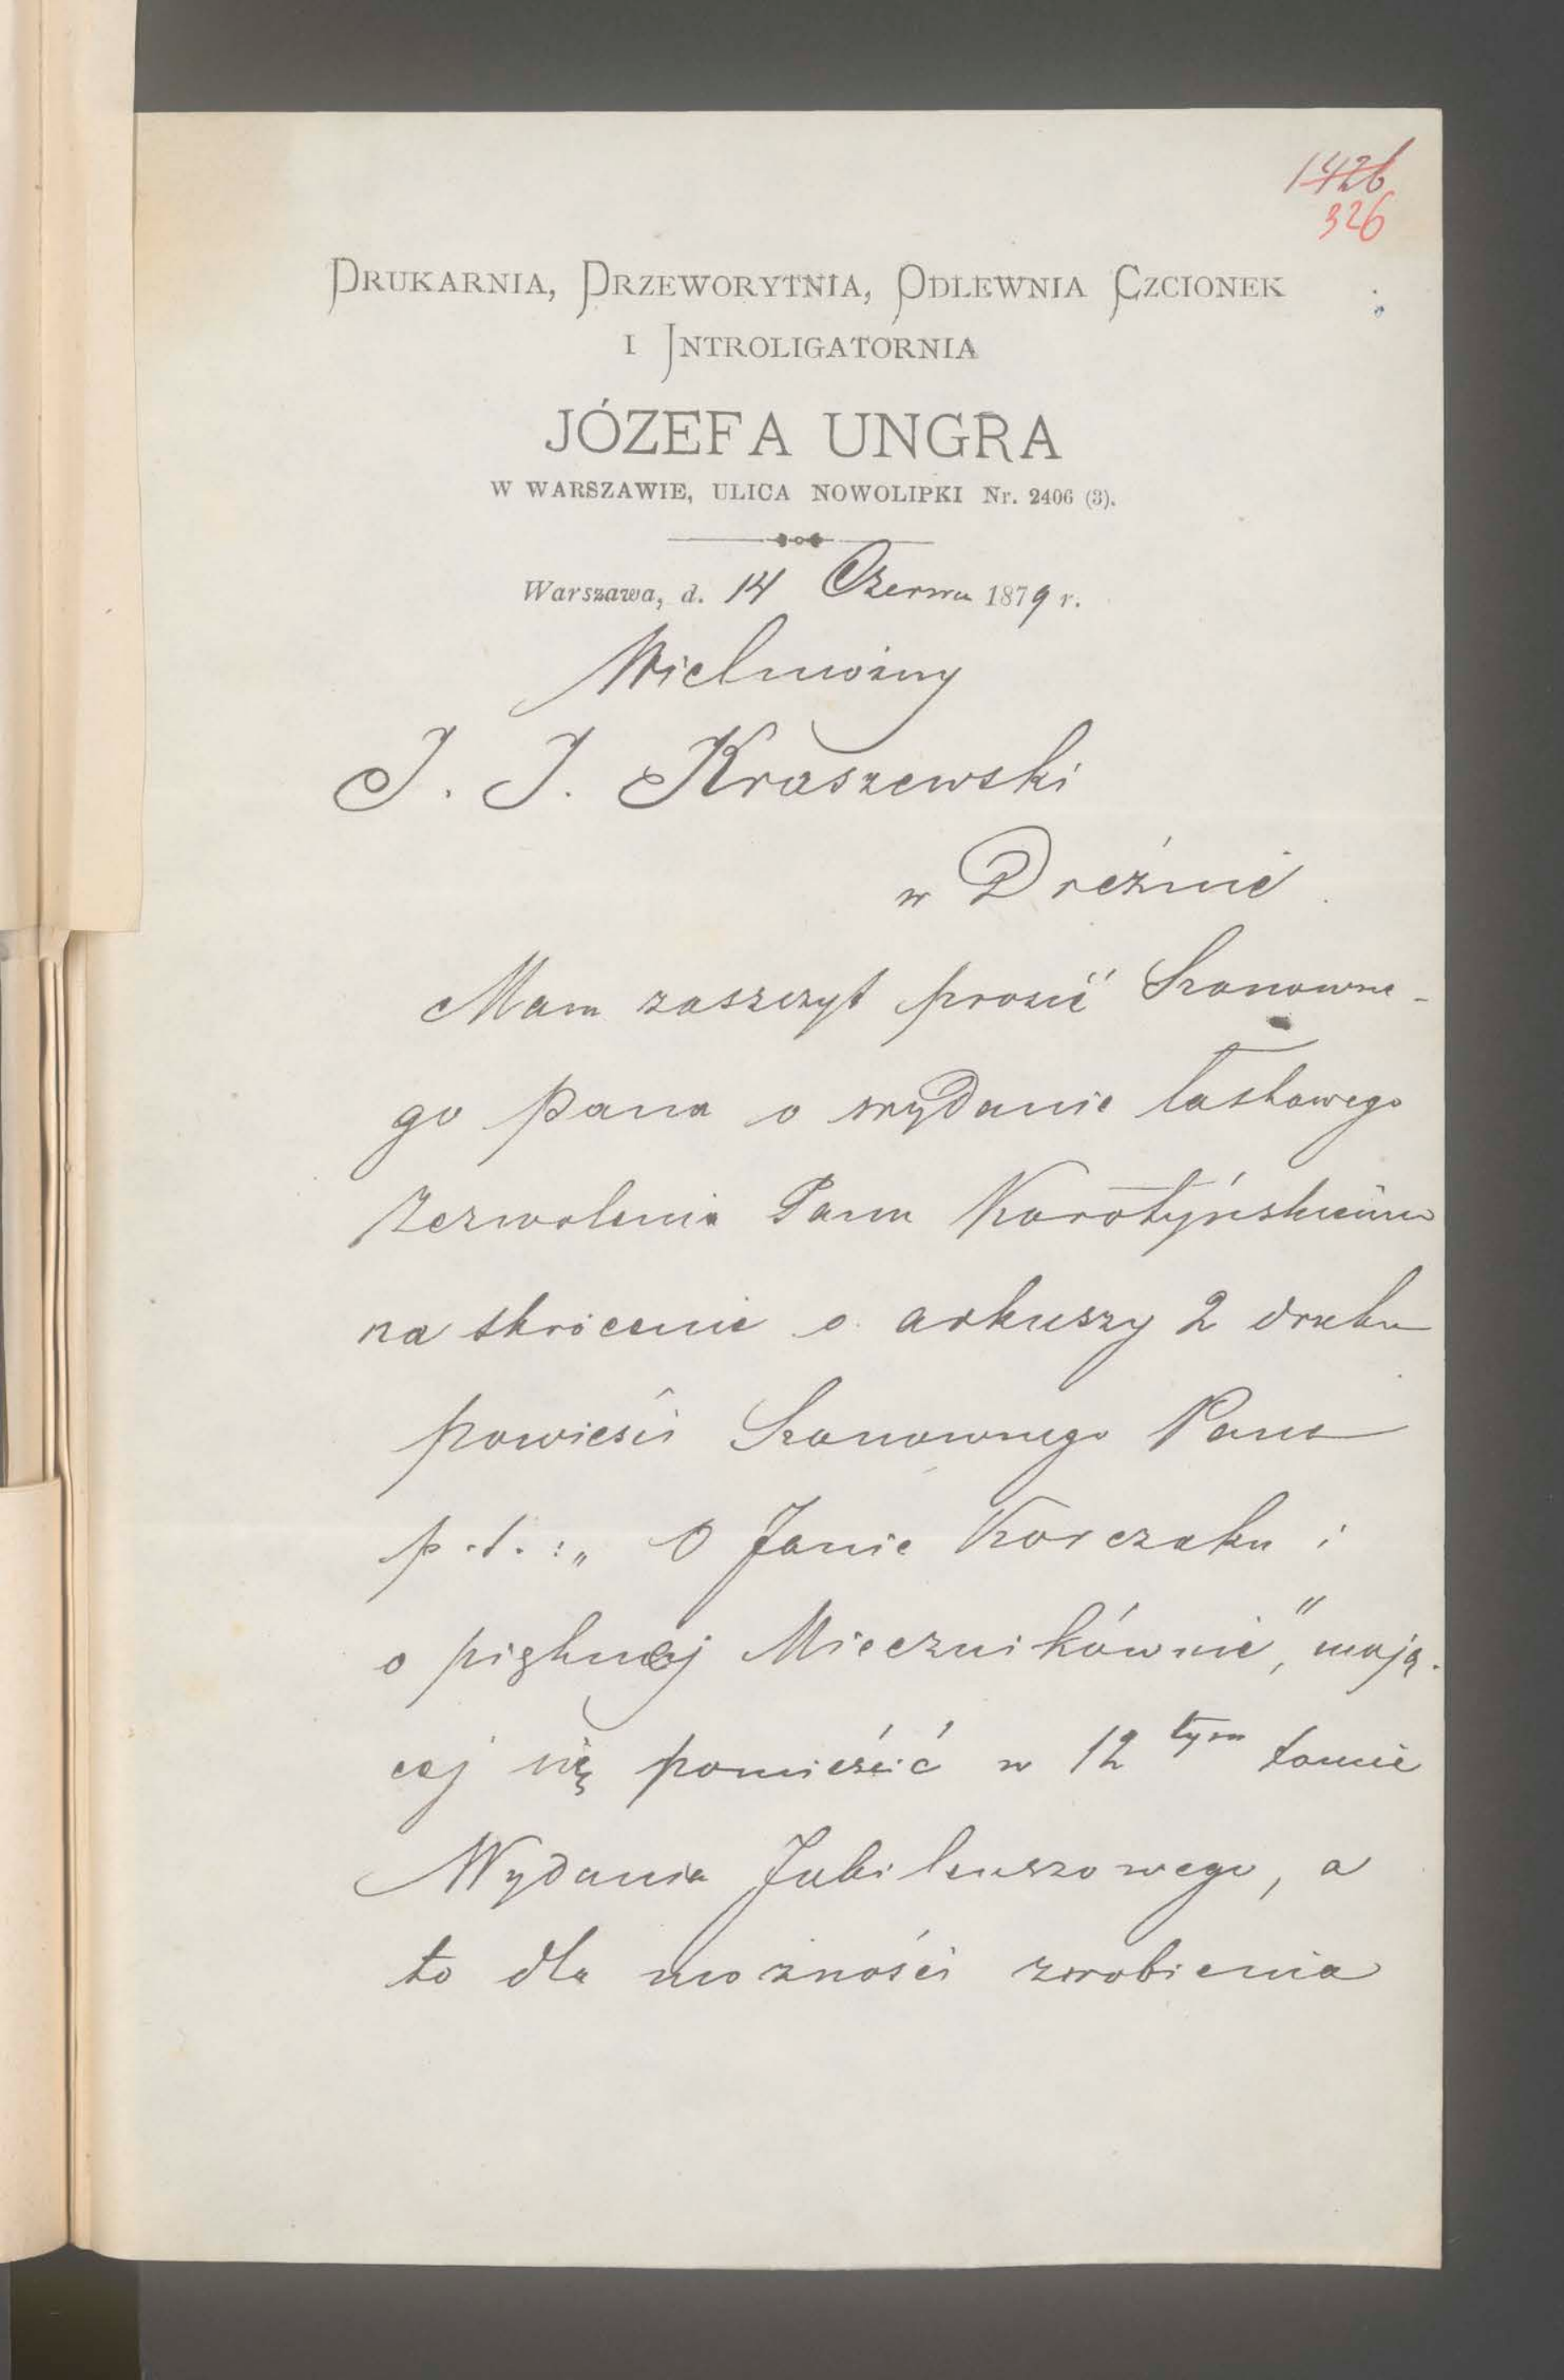 1426
326
DRUKARNIA, DRZEWORYTNIA, ODLEWNIA CZCIONEK
I INTROLIGATORNIA
JÓZEFA UNGRA
W WARSZAWIE, ULICA NOWOLIPKI Nr. 2406 (3).
Warszawa, d. 14 Czerwca 1879 r.
Wielmożny
J. I. Kraszewski
w Dreźnie.
Mam zaszczyt prosić Szanowne-
go Pana o wydanie łaskawego
zezwolenia Panu Korotyńskiemu
na skrócenie o arkuszy 2 druku
powieści Szanownego Pana
p.t.: „O Janie Korczaku i
o pięknej Miecznikównie," mają-
cej się pomieścić w 12tym tomie
Wydania Jubileuszowego, a
to dla możności zrobienia